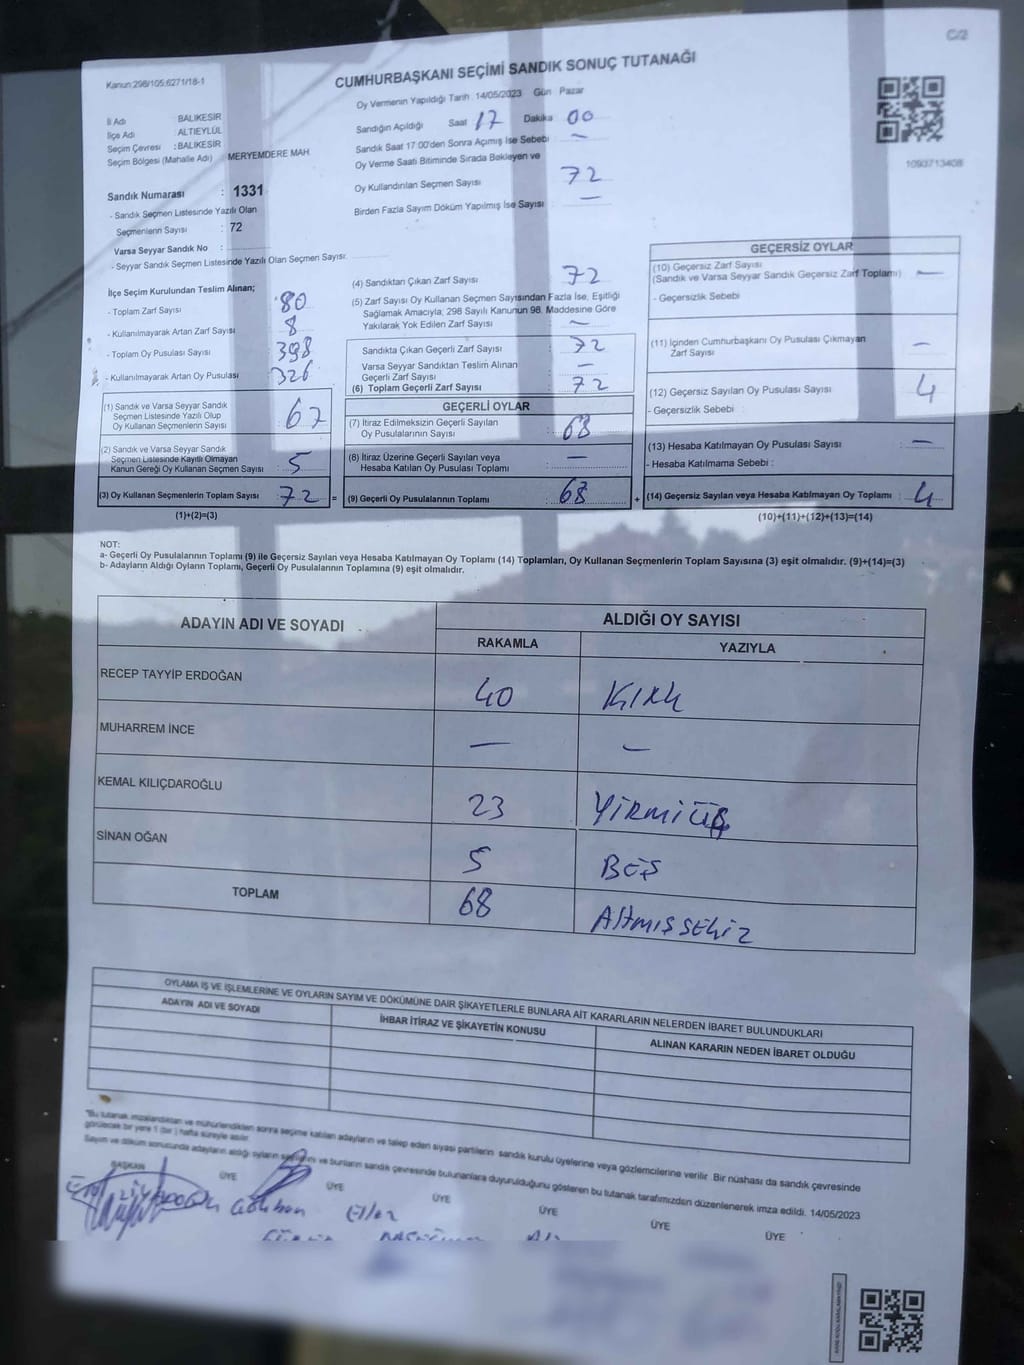 C/2
Kanun:298/105;6271/18-1
CUMHURBAŞKANI SEÇİMİ SANDIK SONUÇ TUTANAĞI
Oy Vermenin Yapıldığı Tarih : 14/05/2023 Gün : Pazar
İl Adı : BALIKESİR
İlçe Adı : ALTIEYLÜL
Seçim Çevresi : BALIKESİR
Seçim Bölgesi (Mahalle Adı) : MERYEMDERE MAH.
Sandık Numarası : 1331
- Sandık Seçmen Listesinde Yazılı Olan
Seçmenlerin Sayısı : 72
Varsa Seyyar Sandık No :
- Seyyar Sandık Seçmen Listesinde Yazılı Olan Seçmen Sayısı:
Sandığın Açıldığı Saat 17 Dakika 00
Sandık Saat 17:00'den Sonra Açımış İse Sebebi —
Oy Verme Saati Bitiminde Sırada Bekleyen ve
Oy Kullandırılan Seçmen Sayısı 72
Birden Fazla Sayım Döküm Yapılmış İse Sayısı —
1093713408
İlçe Seçim Kurulundan Teslim Alınan;
- Toplam Zarf Sayısı : 80
- Kullanılmayarak Artan Zarf Sayısı : 8
- Toplam Oy Pusulası Sayısı : 398
- Kullanılmayarak Artan Oy Pusulası : 326
(1) Sandık ve Varsa Seyyar Sandık
Seçmen Listesinde Yazılı Olup
Oy Kullanan Seçmenlerin Sayısı : 67
(2) Sandık ve Varsa Seyyar Sandık
Seçmen Listesinde Kayıtlı Olmayan
Kanun Gereği Oy Kullanan Seçmen Sayısı : 5
(3) Oy Kullanan Seçmenlerin Toplam Sayısı : 72 =
(1)+(2)=(3)
(4) Sandıktan Çıkan Zarf Sayısı 72
(5) Zarf Sayısı Oy Kullanan Seçmen Sayısından Fazla İse, Eşitliği
Sağlamak Amacıyla; 298 Sayılı Kanunun 98. Maddesine Göre
Yakılarak Yok Edilen Zarf Sayısı —
Sandıkta Çıkan Geçerli Zarf Sayısı : 72
Varsa Seyyar Sandıktan Teslim Alınan
Geçerli Zarf Sayısı : —
(6) Toplam Geçerli Zarf Sayısı : 72
GEÇERLİ OYLAR
(7) İtiraz Edilmeksizin Geçerli Sayılan
Oy Pusulalarının Sayısı : 68
(8) İtiraz Üzerine Geçerli Sayılan veya
Hesaba Katılan Oy Pusulası Toplamı : —
(9) Geçerli Oy Pusulalarının Toplamı : 68 +
GEÇERSİZ OYLAR
(10) Geçersiz Zarf Sayısı
(Sandık ve Varsa Seyyar Sandık Geçersiz Zarf Toplamı) : —
- Geçersizlik Sebebi :
(11) İçinden Cumhurbaşkanı Oy Pusulası Çıkmayan
Zarf Sayısı : —
(12) Geçersiz Sayılan Oy Pusulası Sayısı : 4
- Geçersizlik Sebebi :
(13) Hesaba Katılmayan Oy Pusulası Sayısı : —
- Hesaba Katılmama Sebebi :
(14) Geçersiz Sayılan veya Hesaba Katılmayan Oy Toplamı : 4
(10)+(11)+(12)+(13)=(14)
NOT:
a- Geçerli Oy Pusulalarının Toplamı (9) ile Geçersiz Sayılan veya Hesaba Katılmayan Oy Toplamı (14) Toplamları, Oy Kullanan Seçmenlerin Toplam Sayısına (3) eşit olmalıdır. (9)+(14)=(3)
b- Adayların Aldığı Oyların Toplamı, Geçerli Oy Pusulalarının Toplamına (9) eşit olmalıdır.
ADAYIN ADI VE SOYADI ALDIĞI OY SAYISI
RAKAMLA YAZIYLA
RECEP TAYYİP ERDOĞAN 40 KIRK
MUHARREM İNCE — —
KEMAL KILIÇDAROĞLU 23 YİRMİÜÇ
SİNAN OĞAN 5 BEŞ
TOPLAM 68 AltmışSEKİZ
OYLAMA İŞ VE İŞLEMLERİNE VE OYLARIN SAYIM VE DÖKÜMÜNE DAİR ŞİKAYETLERLE BUNLARA AİT KARARLARIN NELERDEN İBARET BULUNDUKLARI
ADAYIN ADI VE SOYADI İHBAR İTİRAZ VE ŞİKAYETİN KONUSU ALINAN KARARIN NEDEN İBARET OLDUĞU
"Bu tutanak imzalandıktan ve mühürlendikten sonra seçime katılan adayların ve talep eden siyasi partilerin sandık kurulu üyelerine veya gözlemcilerine verilir. Bir nüshası da sandık çevresinde
görülecek bir yere 1 (bir) hafta süreyle asılır.
Sayım ve döküm sonucunda adayların aldığı oyların sayılarını ve bunların sandık çevresinde bulunanlara duyurulduğunu gösteren bu tutanak tarafımızdan düzenlenerek imza edildi. 14/05/2023
BAŞKAN ÜYE ÜYE ÜYE ÜYE ÜYE ÜYE